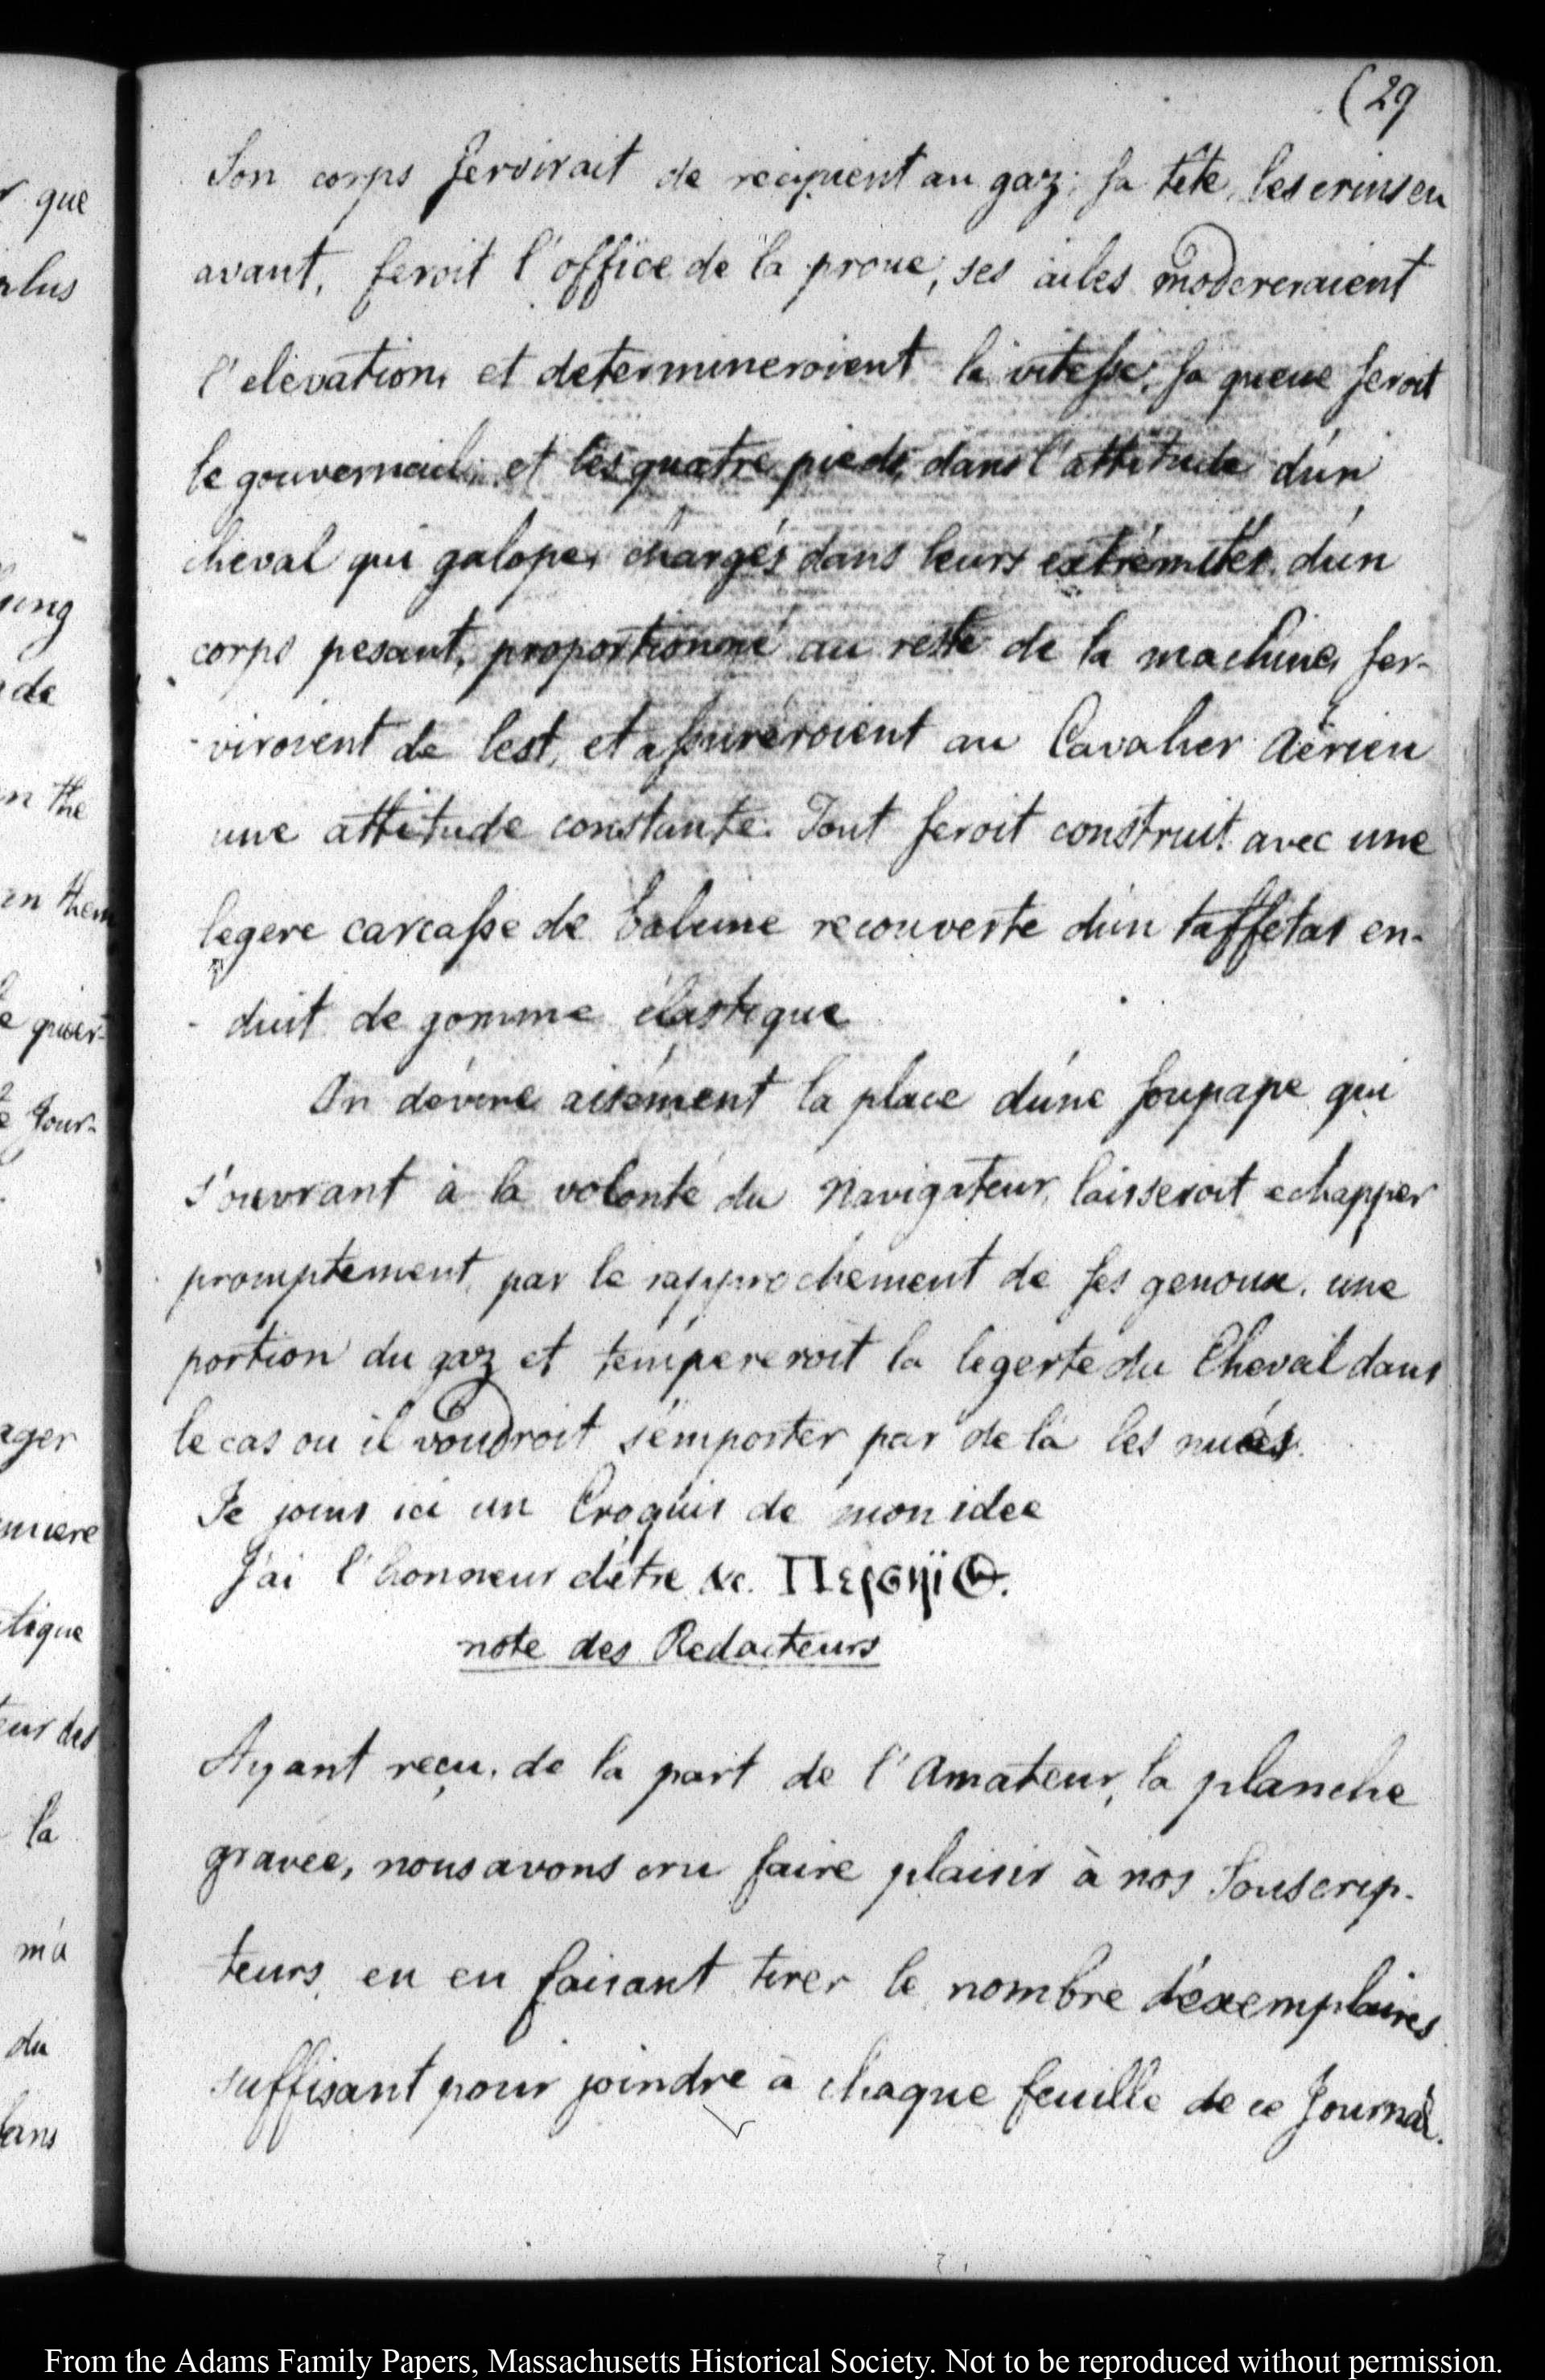 (29
Son corps serviroit de recipient au gaz; sa tête, les crins en
avant, feroit l'office de la proue, ses ailes modereraient
l'elevation, et determineroient la vitesse; sa queue seroit
le gouvernail; et les quatre pieds, dans l'attitude d'un
cheval qui galope, chargés dans leurs extrémités d'un
corps pesant, proportionné au reste de la machine, ser-
-viroient de lest, et assureroient au Cavalier Aérien
une attitude constante. Tout seroit construit avec une
legere carcasse de baleine recouverte d'un taffetas en-
-duit de gomme élastique
On dévine aisément la place d'une soupape qui
s'ouvrant à la volonté du Navigateur, laisseroit echapper
promptement, par le rapprochement de ses genoux, une
portion du gaz et tempereroit la legerte du Cheval dans
le cas ou il voudroit s'emporter par de là les nuées.
Je joins ici un Croquis de mon idee
J'ai l'honneur d'être &c.
note des Redacteurs
Ayant reçu, de la part de l'Amateur, la planche
gravee, nous avons cru faire plaisir à nos Souscrip-
teurs, en en faisant tirer le nombre d'exemplaires
suffisant pour joindre à chaque feuille de ce Journal.
que
plus
de
in the
in them
Jour-
tique
la
m'a
du
From the Adams Family Papers, Massachusetts Historical Society. Not to be reproduced without permission.